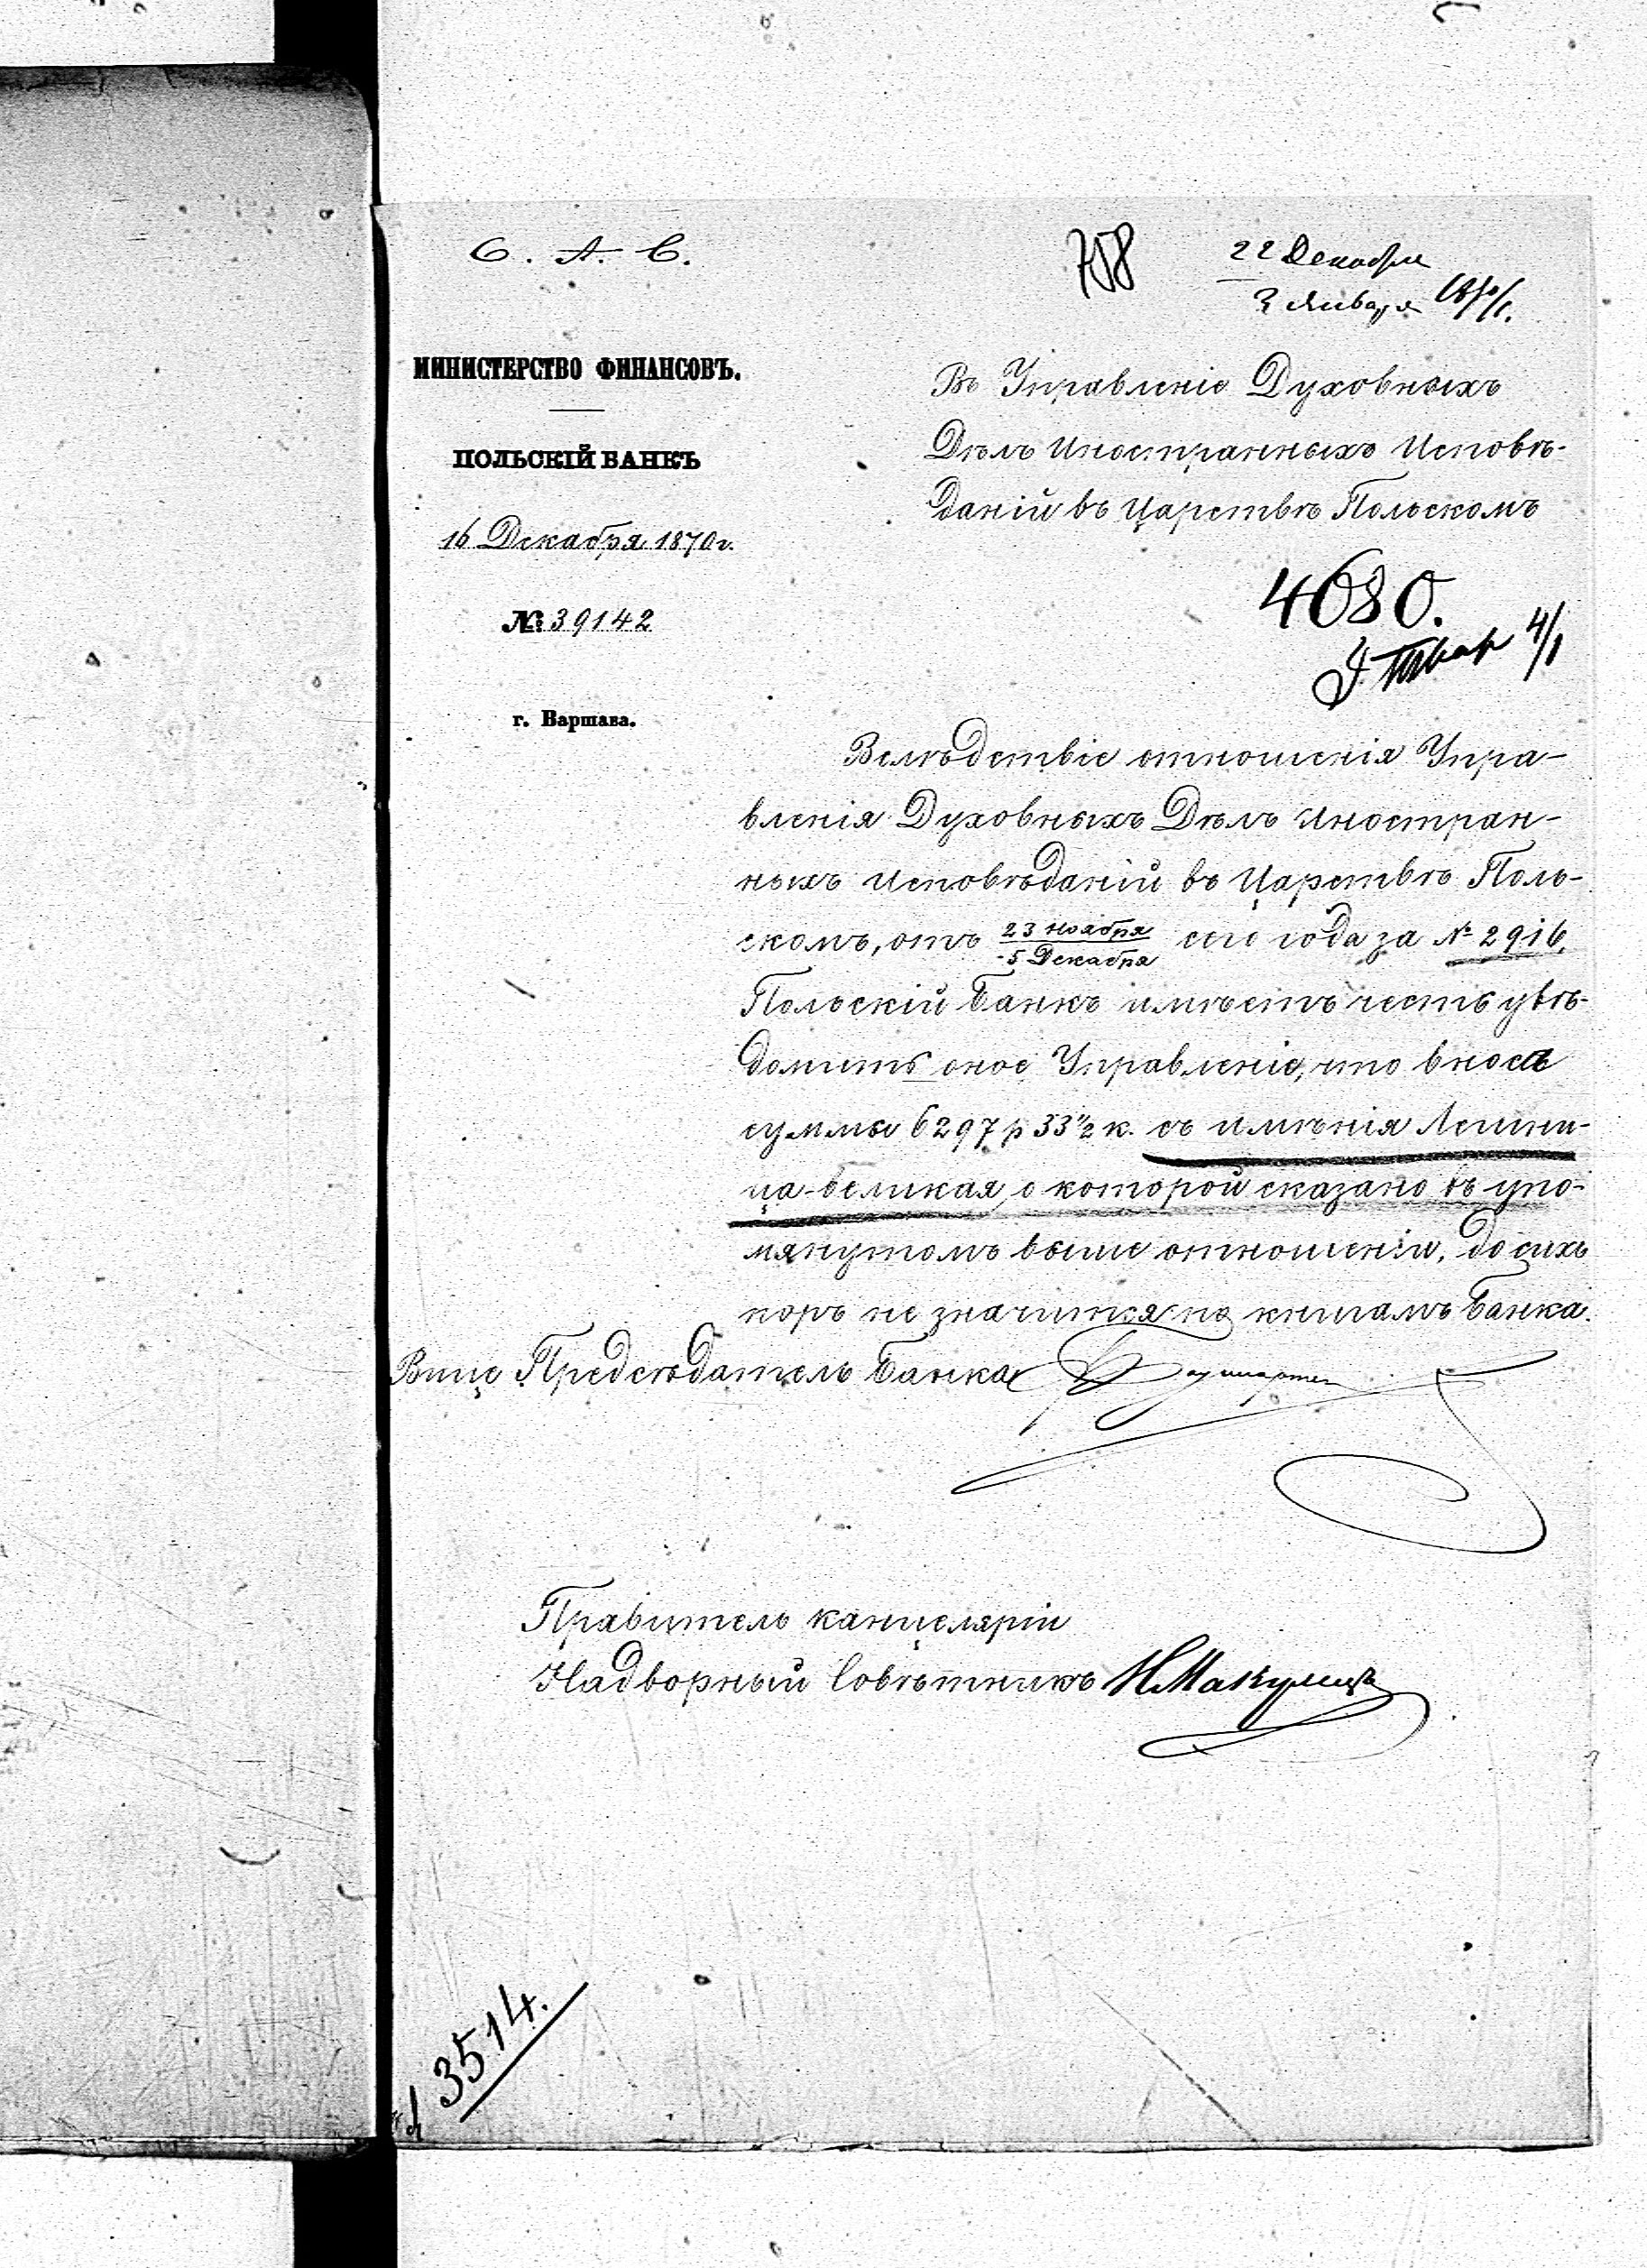 С. А. С.
708
22 Декабря
3 Января 1870/1.
МИНИСТЕРСТВО ФИНАНСОВЪ.
ПОЛЬСКІЙ БАНКЪ
16 Декабря 1870 г.
№ 39142
г. Варшава.
Въ Управленіе Духовныхъ
Дѣлъ Иностранныхъ Исповѣ-
даній въ Царствѣ Польскомъ
4080.
4/1
Вслѣдствіе отношенія Упра-
вленія Духовныхъ Дѣлъ Иностран-
ныхъ Исповѣданій въ Царствѣ Поль-
скомъ, отъ 23 Ноября / 5 Декабря сего года за № 2916,
Польскій Банкъ имѣетъ честь увѣ-
домить оное Управленіе, что вноса
суммы 6297 р 33 1/2 к. съ имѣнія Лешни-
ца-великая, о которой сказано въ упо-
мянутомъ выше отношеніи, до сихъ
поръ не значится по книгамъ Банка.
Вице Предсѣдатель Банка
Правитель канцеляріи
Надворный Совѣтникъ
3514.